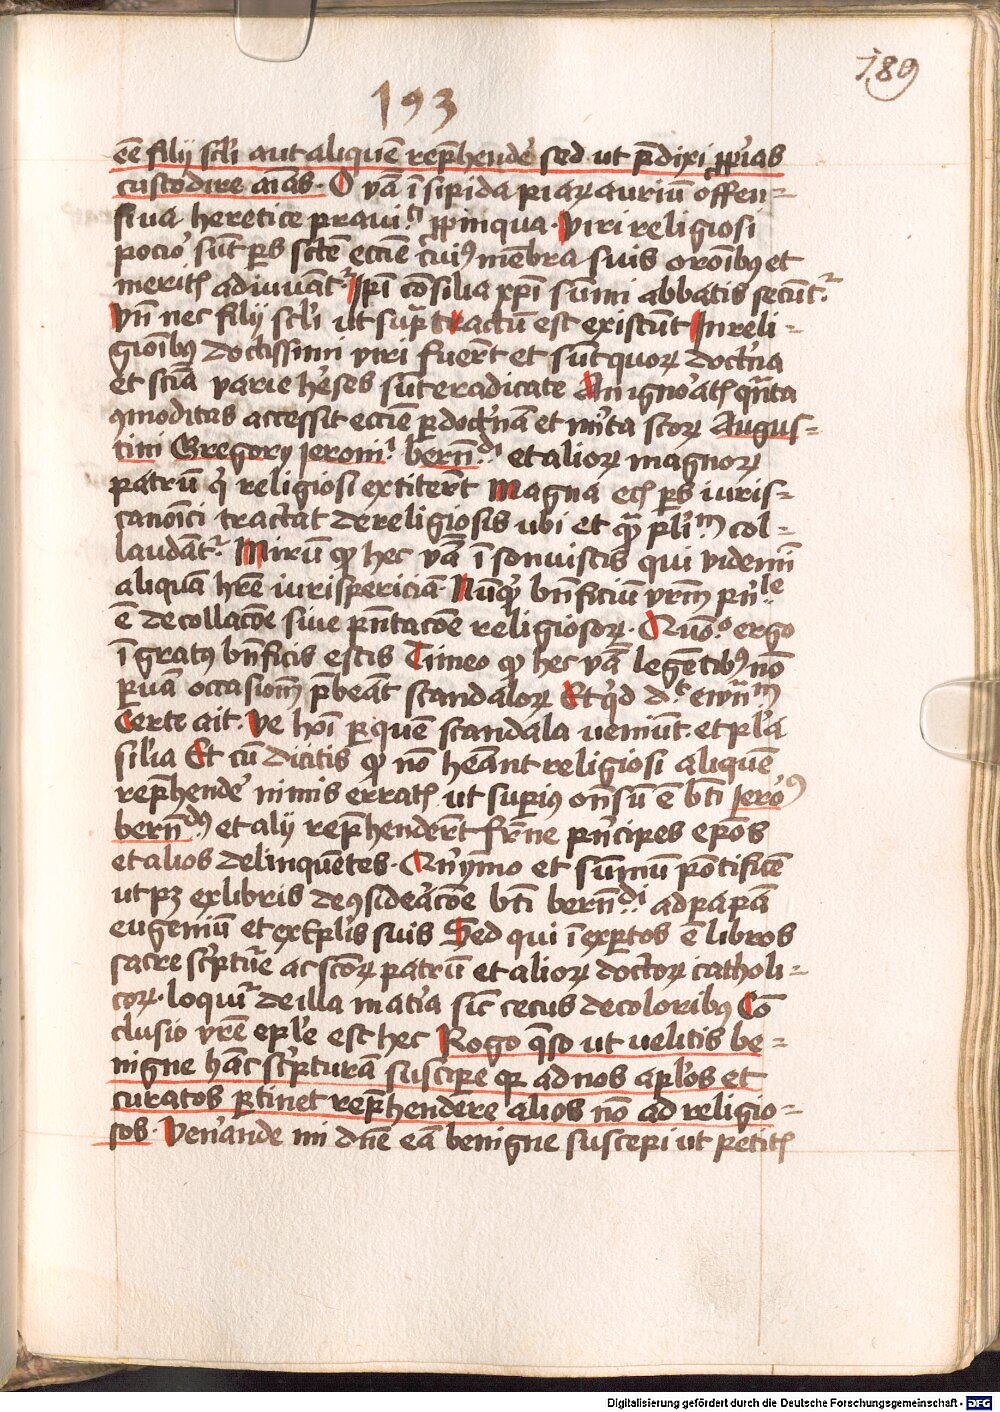 189
193
eē filij scl̄i aut aliquē rep̄hendē sed ut p̄dixi ꝓp̄ias
custodire aīas. O vā ī sipida piaꝝ auriū offen-
siua heretice praui ꝓpinqua. Viri religiosi
pocio᷑ sūt ps sctē eccīe cui9 mēbra suis oroībꝰ et
meritis adiuuāt᷑ Ip̄i cōsilia xp̄i sūmi abbatis secūt᷑
Vn̄ nec filij scl̄i ut sup̄ tractū est existūt In reli-
gioībꝰ doctissimi viri fuer̄t et sūt quoꝝ doctͥna
et sciā varie he᷑ses sūt eradicate An ignoratis qn̄ta
ꝯmoditas accessit eccīe ꝑ doctͥnā et mīta scoꝝ Augus-
tini Gregorij Jeronī bern̄di et alioꝝ magnoꝝ
patrū qͥ religiosi extiter̄t Magna ecī ps iuris-
canoīci tractat de religiosis ubi et qͣ plim col-
laudāt᷑. Mirū ꝙ hec vā ī sonuistis qui videmī
aliquā hr̄e iurispericiā. Nūqͥ bn̄ficiū vr̄m pn̄le
ē de collacōe siue pn̄tacōe religiosoꝝ. Quō ergo
ī gratꝰ bn̄ficis estis Timeo ꝙ hec vā legētibꝰ nō
ꝑuā occasionē p̄beāt scandaloꝝ Et qͥd dt
Certe ait. Ve hoī ꝑ quē scandala ueniūt. et pl̄a
sil̄ia Et cū dicitis ꝙ nō heānt religiosi aliquē
rep̄hendē nimis erratis ut supiꝰ on̄sū ē bt̄i Jerō
bern̄dꝰ et alij rep̄hender̄t pn̄cipes ep̄os
et alios delinquētes. Qn̄ymo et sūmū pōtificē
ut pꝫ ex libris de ꝯsideracōe bt̄i bern̄di ad papā
eugeniū et ex epl̄is suis Sed qui ī expertos ē libros
sacre scͥptur̄e ac scōꝝ patrū et alioꝝ doctoꝝ catholi-
coꝝ. loquit᷑ de illa matͥa sic̄ cecus de coloribꝰ Cō
clusio vr̄e epl̄e est hec Rogo qͣso ut uelitis be-
nigne hāc scͥpturā suscipe qꝛ ad nos ap̄l̄os et
curatos ꝑtinet rep̄hendere alios nō ad religio-
sos. Ven̄ande mi dn̄e eā benigne suscepi ut petitis
Digitalisierung gefördert durch die Deutsche Forschungsgemeinschaft - DFG